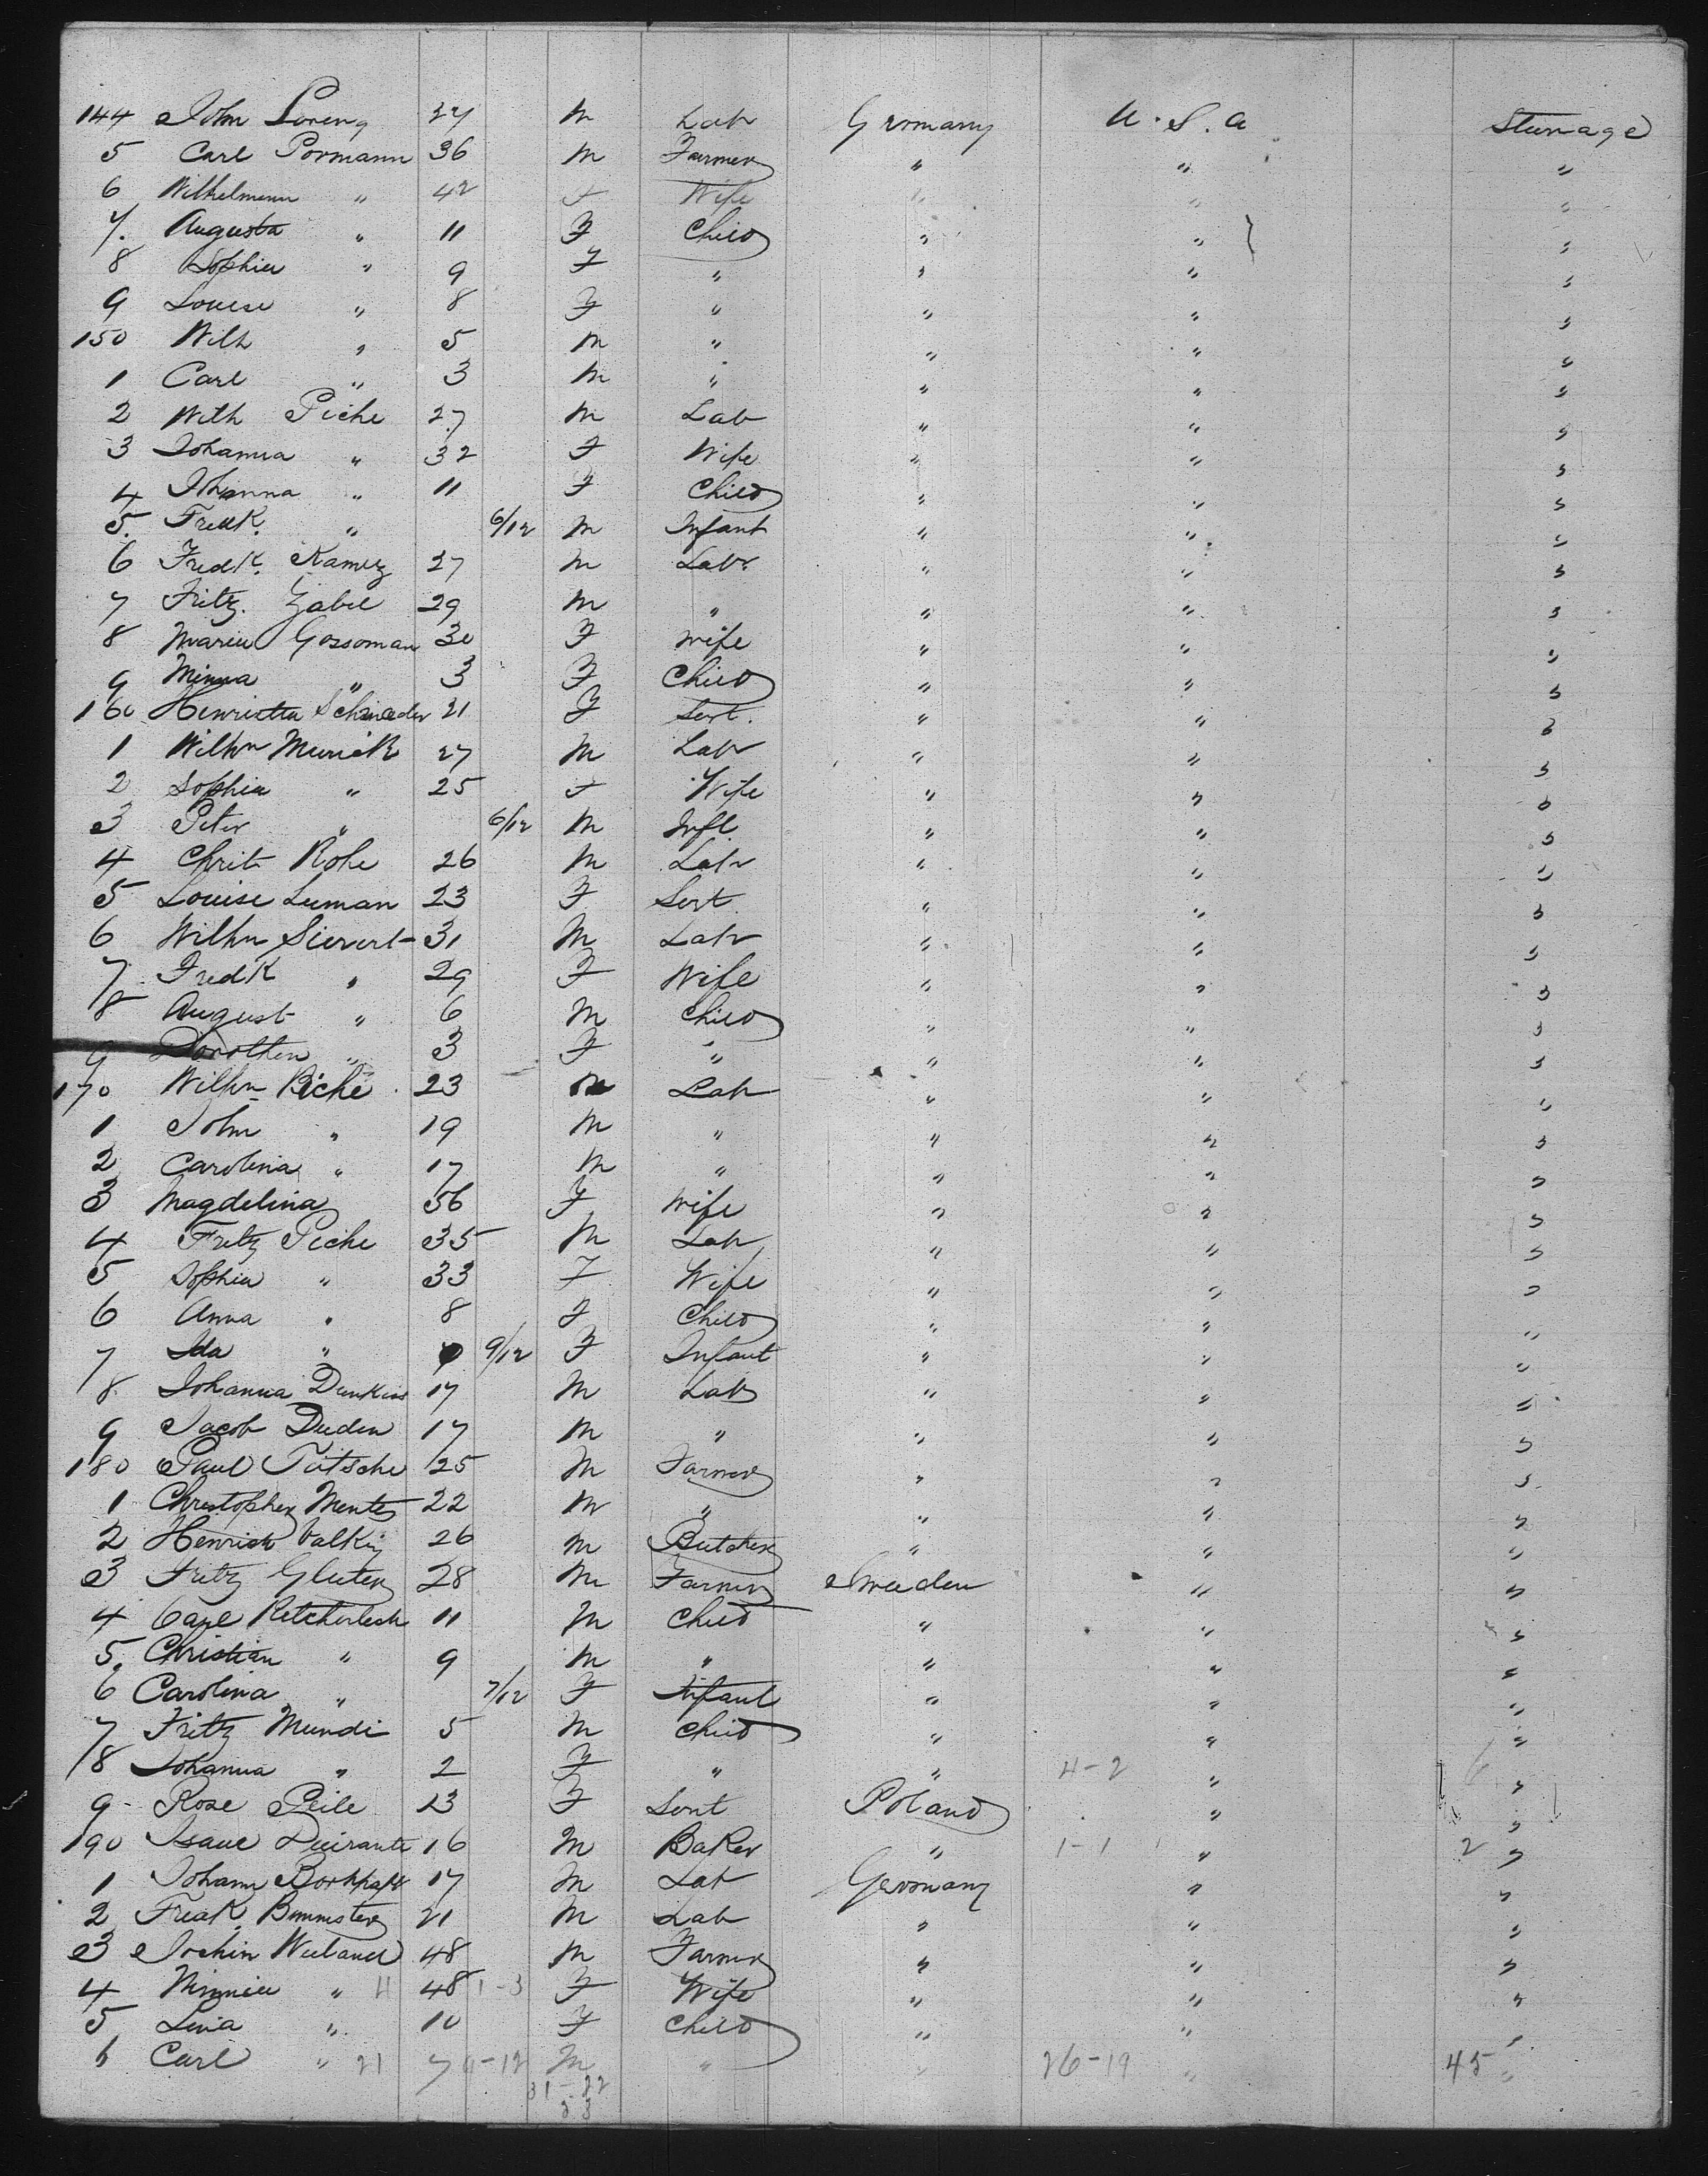 144 John Loreng 27 M Lab Germany U. S. A Sterage
5 Carl Pormann 36 M Farmer " " "
6 Wilhelmenn " 42 F Wife " " "
7. Augusta " 11 F Child " " "
8 Sophia " 9 F " " " "
9 Louise " 8 F " " " "
150 Wilh " 5 M " " " "
1 Carl " 3 M " " " "
2 Wilh Piche 27 M Lab " " "
3 Johanna " 32 F Wife " " "
4 Johanna " 11 F Child " " "
5. Fredk. " 6/12 M Infant " " "
6 Fredk. 27 M Labr " " "
7 Fritz. Zabel 29 M " " " "
8 Maria Gossoman 30 F Wife " " "
9 Minna " 3 F Child " " "
160 Henrietta Schroeder 21 F Sert. " " "
1 Wilhm Munck 27 M Lab " " "
2 Sophia " 25 F Wife " " "
3 Peter " 6/12 M Infl. " " "
4 Christ Rohe 26 M Lab " " "
5 Louise Luman 23 F Sert " " "
6 Wilhm Sievert 31 M Lab " " "
7 Fredk " 29 F Wife " " "
8 August " 6 M Child " " "
9 Dorothea " 3 F " " " "
170 Wilhm Piche 23 M Lab " " "
1 John " 19 M " " " "
2 Carolina " 17 M " " " "
3 Magdelina 56 F Wife " " "
4 Fritz Piche 35 M Lab " " "
5 Sophia " 33 F Wife " " "
6 Anna " 8 F Child " " "
7 Ida " 9/12 F Infant " " "
8 Johanna 17 M Lab " " "
9 Jacob Duden 17 M " " " "
180 Paul Tutsche 25 M Farmer " " "
1 Christopher Mentz 22 M " " " "
2 Henrich 26 M Butcher " " "
3 Fritz Gluter 28 M Farmer Sweden " "
4 Carl 11 M Child " " "
5. Christian " 9 M " " " "
6 Carolina " 7/12 F Infant " " "
7 Fritz Mundi 5 M Child " " "
8 Johanna " 2 F " " 4-2 " "
9 Rose Peile 23 F Sert Poland " "
190 Isaac 16 M Baker " 1-1 " 2 "
1 Johann 17 M Lab Germany " "
2 Fredk. 21 M Lab " " "
3 Jochin 48 M Farmer " " "
4 Minnie " 11 48 1-3 F Wife " " "
5 Lina " 10 F Child " " "
6 Carl " 21 7 11-12 M " " 26-19 " 45 "
31-22
23